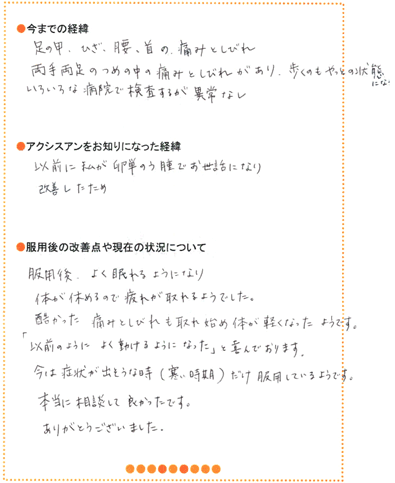 ●今までの経緯
足の甲、ひざ、腰、首の痛みとしびれ
両手両足のつめの中の痛みとしびれがあり、歩くのもやっとの状態
になり
いろいろな病院で検査するが異常なし
●アクシスアンをお知りになった経緯
以前に私が卵巣のう腫でお世話になり
改善したため
●服用後の改善点や現在の状況について
服用後、よく眠れるようになり
体が休めるので疲れが取れるようでした。
酷かった 痛みとしびれも取れ始め体が軽くなったようです。
「以前のように よく動けるようになった」と喜んでおります。
今は症状が出そうな時(寒い時期)だけ服用しているようです。
本当に相談して良かったです。
ありがとうございました。